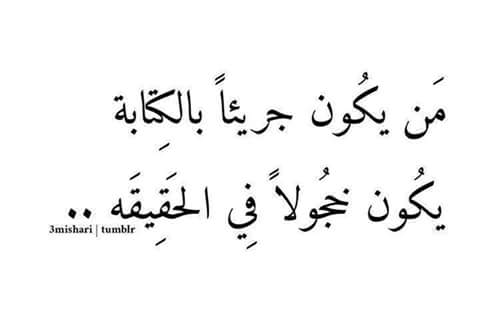 مَن يكُون جريئاً بالكِتابة
يكُون خجُولاً فِي الحَقِيقَه ..
3mishari | tumblr